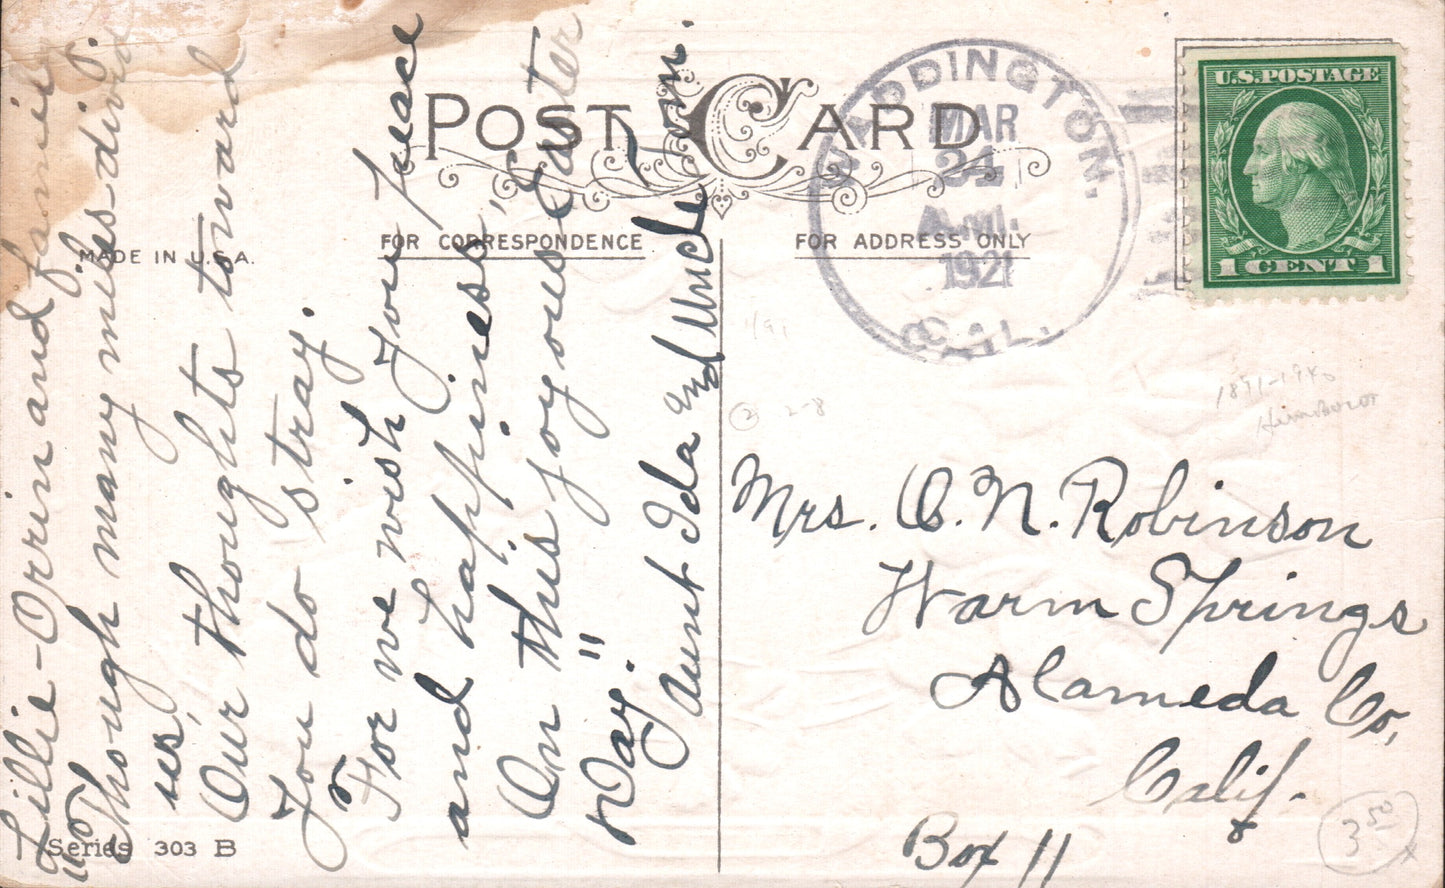 POST CARD
MADE IN U.S.A.
FOR CORRESPONDENCE
FOR ADDRESS ONLY
WADDINGTON.
MAR
24
A.M.
1921
CAL.
U.S. POSTAGE
1 CENT 1
Lillie - Orrin and family
"Though many miles divide
us,
Our thoughts toward
You do stray.
For we wish you peace
and happiness,
On this joyous Easter
Day."
Aunt Ida and Uncle Tom.
1891-1940
② 2-8
Mrs. O. N. Robinson
Warm Springs
Alameda Co,
Calif.
Box 11
Series 303 B
3 50